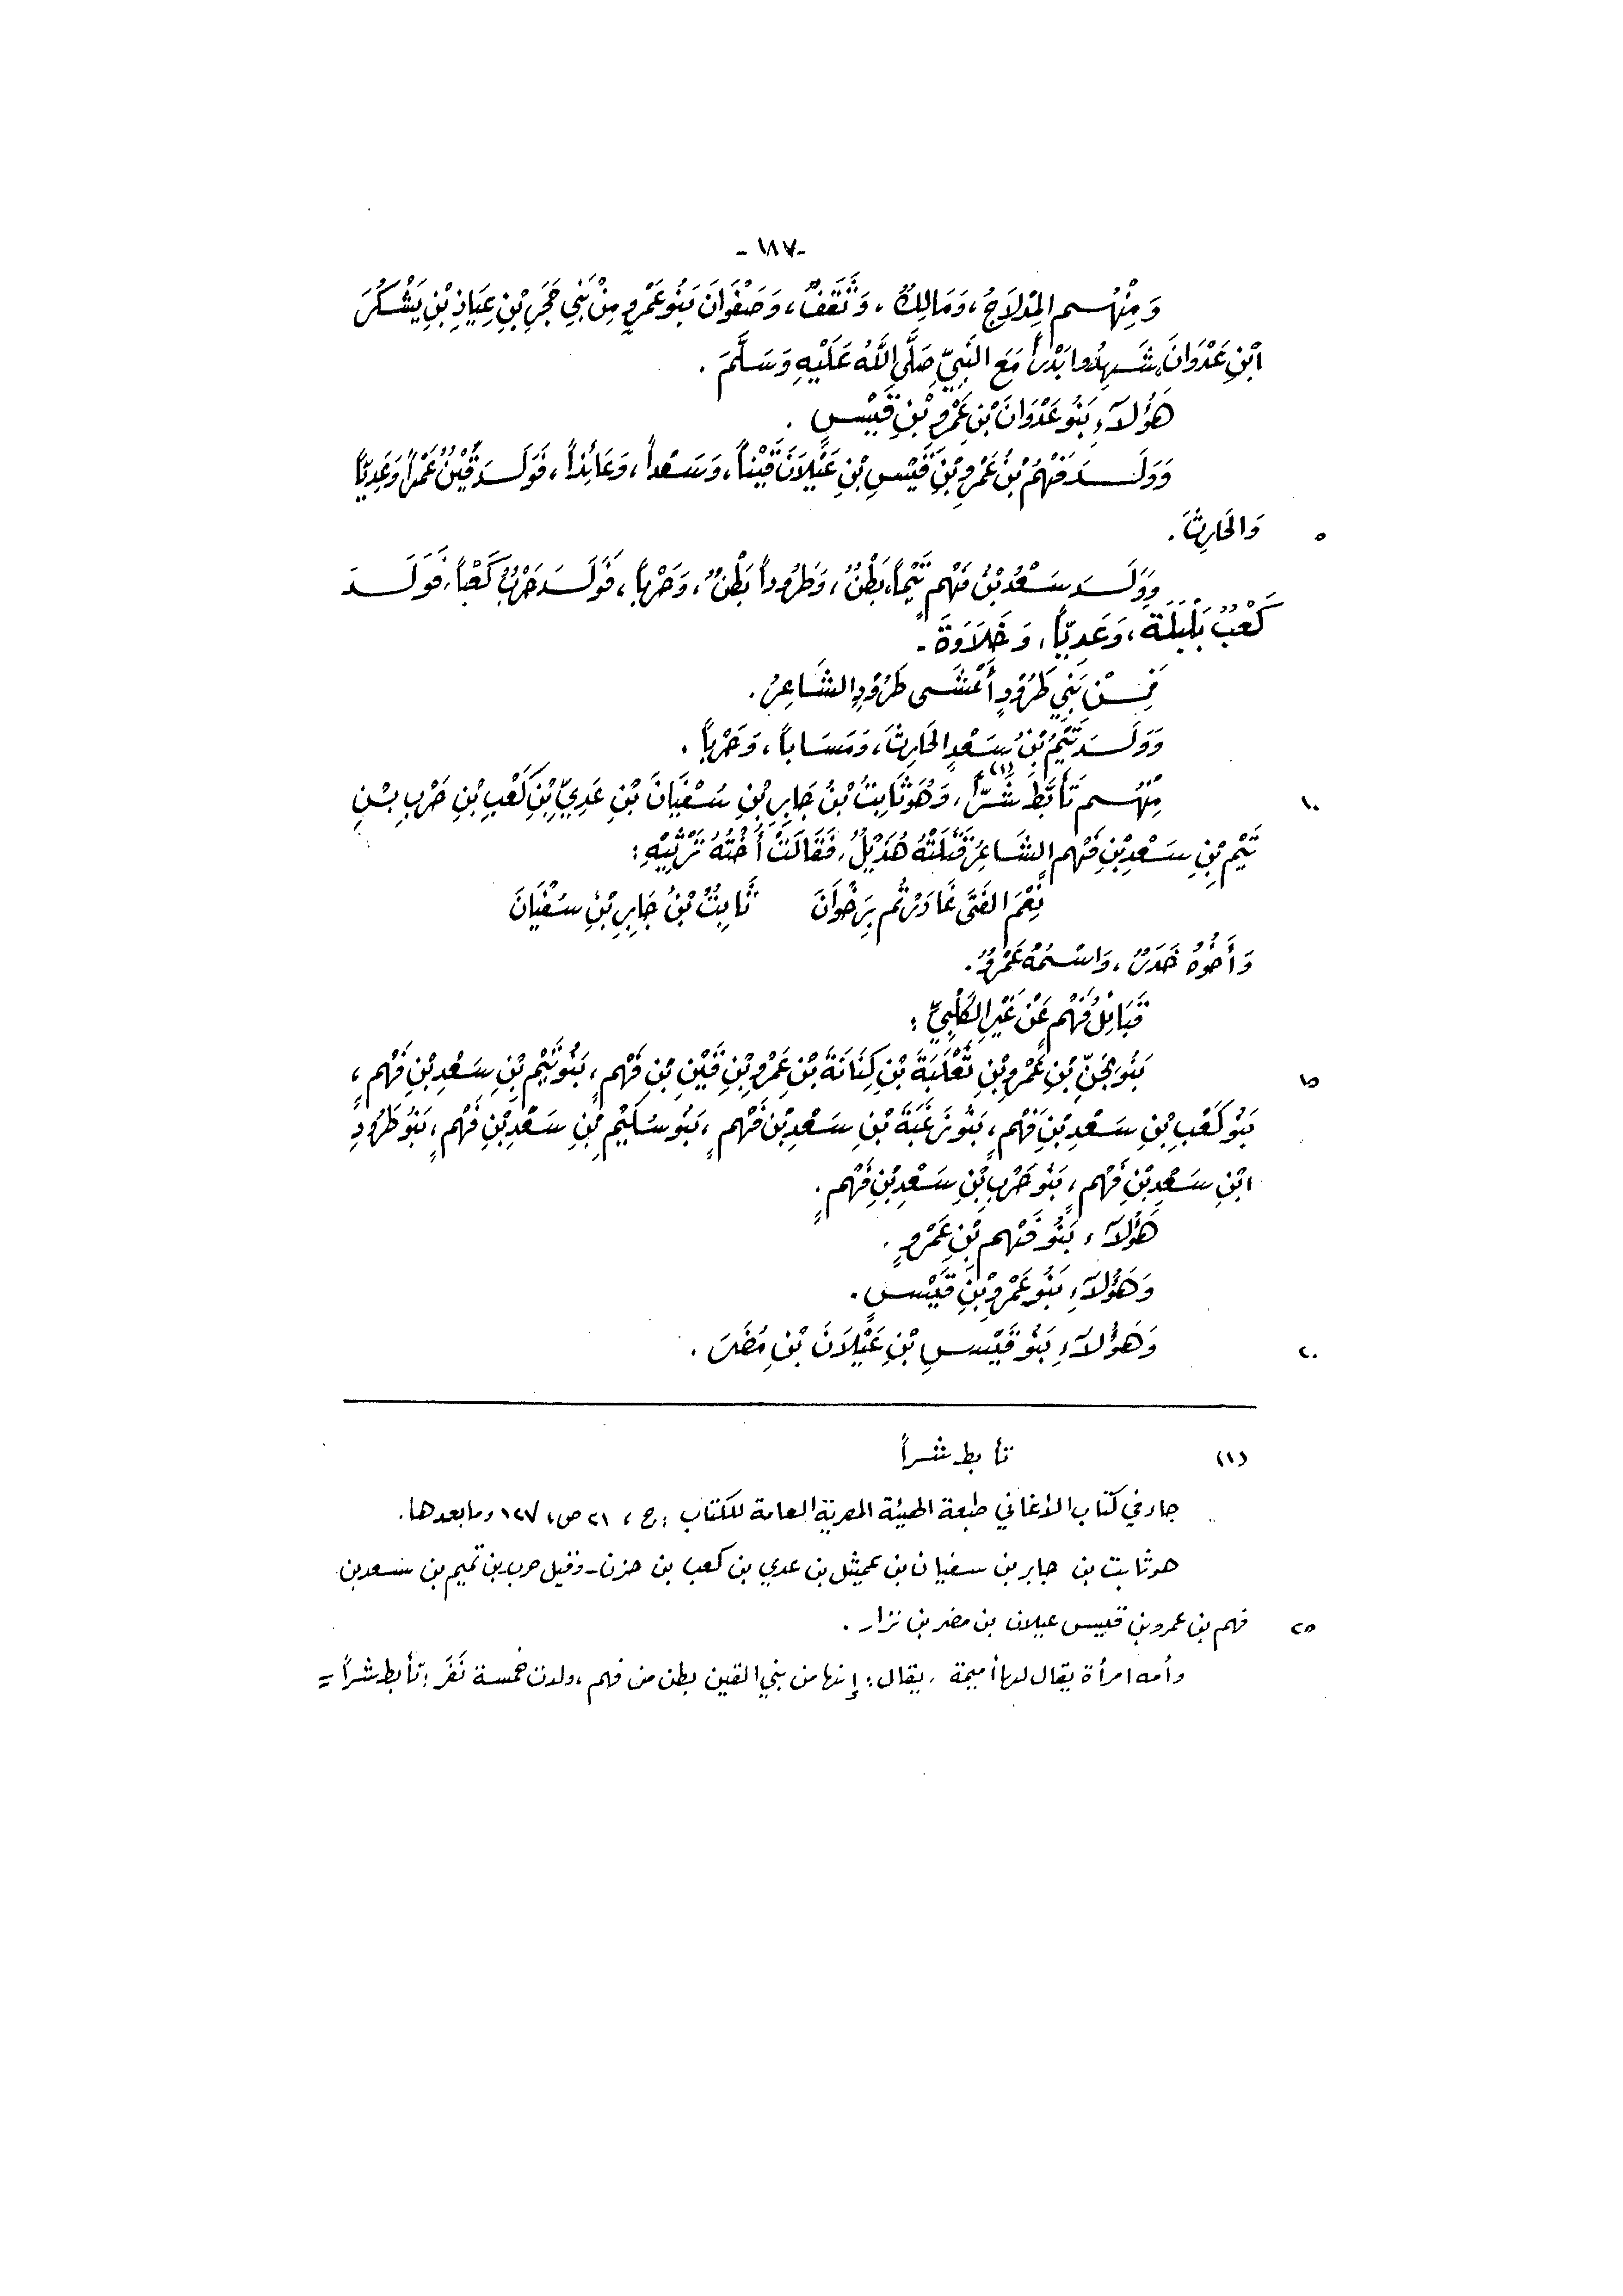 -١٨٧-
وَمِنْهُم المِدْلَاجُ، وَمَالِكٌ، وَثَقَفٌ، وَصَفْوَانَ بَنُو عَمْرٍو مِنْ بَنِي حَجَرِ بْنِ عِيَاذِ بْنِ يَشْكُرَ
ابْنِ عَدْوَانَ، شَهِدُوا بَدْراً مَعَ النَّبِيِّ صَلَّى اللَّهُ عَلَيْهِ وَسَلَّمَ.
هَؤُلَآءِ بَنُو عَدْوَانَ بْنِ عَمْرِو بْنِ قَيْسٍ.
وَوَلَدَ فَهْمُ بْنُ عَمْرِو بْنِ قَيْسِ بْنِ عَيْلَانَ قَيْناً، وَسَعْداً، وَعَائِذاً، فَوَلَدَ قَيْنُ عَمْراً وَعَدِيّاً
٥ وَالحَارِثَ.
وَوَلَدَ سَعْدُ بْنُ فَهْمٍ تَيْماً، بَطْنٌ، وَطَرُوداً بَطْنٌ، وَحَرْباً، فَوَلَدَ حَرْبٌ كَعْباً، فَوَلَدَ
كَعْبٌ بَلْبَلَةَ، وَعَدِيّاً، وَخَلَاوَةَ.
فَمِنْ بَنِي طَرُودٍ أَعْشَى طَرُودٍ الشَّاعِرُ.
وَوَلَدَ تَيْمُ بْنُ سَعْدٍ الحَارِثَ، وَمَسَاباً، وَحَرْباً.
١٠ مِنْهُم تَأَبَّطَ شَرّاً(١)، وَهُوَ ثَابِتُ بْنُ جَابِرِ بْنِ سُفْيَانَ بْنِ عَدِيِّ بْنِ كَعْبِ بْنِ حَرْبِ بْنِ
تَيْمِ بْنِ سَعْدِ بْنِ فَهْمٍ الشَّاعِرُ قَتَلَتْهُ هُذَيْلٌ، فَقَالَتْ أُخْتُهُ تَرْثِيْهِ:
نِعْمَ الفَتَى غَادَرْتُم بِرَخْوَانَ ثَابِتُ بْنُ جَابِرِ بْنِ سُفْيَانَ
وَأَخُوهُ خَدَرٌ، وَاسْمُهُ عَمْرٌو.
قَبَائِلُ فَهْمٍ عَنْ غَيْرِ الكَلْبِيِّ:
١٥ بَنُو جِنِّ بْنِ عَمْرِو بْنِ ثَعْلَبَةَ بْنِ كِنَانَةَ بْنِ عَمْرِو بْنِ قَيْنِ بْنِ فَهْمٍ، بَنُو تَيْمِ بْنِ سَعْدِ بْنِ فَهْمٍ،
بَنُو كَعْبِ بْنِ سَعْدِ بْنِ فَهْمٍ، بَنُو زَغَبَةَ بْنِ سَعْدِ بْنِ فَهْمٍ، بَنُو سُلَيْمِ بْنِ سَعْدِ بْنِ فَهْمٍ، بَنُو طَرُودِ
ابْنِ سَعْدِ بْنِ فَهْمٍ، بَنُو حَرْبِ بْنِ سَعْدِ بْنِ فَهْمٍ.
هَؤُلَآءِ بَنُو فَهْمِ بْنِ عَمْرٍو.
وَهَؤُلَآءِ بَنُو عَمْرِو بْنِ قَيْسٍ.
٢٠ وَهَؤُلَآءِ بَنُو قَيْسِ بْنِ عَيْلَانَ بْنِ مُضَرَ.
(١) تأبط شراً
جاء في كتاب الأغاني طبعة الهيئة المصرية العامة للكتاب: ج، ٢١ ص، ١٢٧ وما بعدها.
هو ثابت بن جابر بن سفيان بن عميثل بن عدي بن كعب بن حزن - وقيل حرب بن تميم بن سعد بن
٢٥ فهم بن عمرو بن قيس عيلان بن مضر بن نزار.
وأمه امرأة يقال لها أميمة، يقال: إنها من بني القين بطن من فهم، ولدت خمسة نَفَرٍ: تأبط شراً =